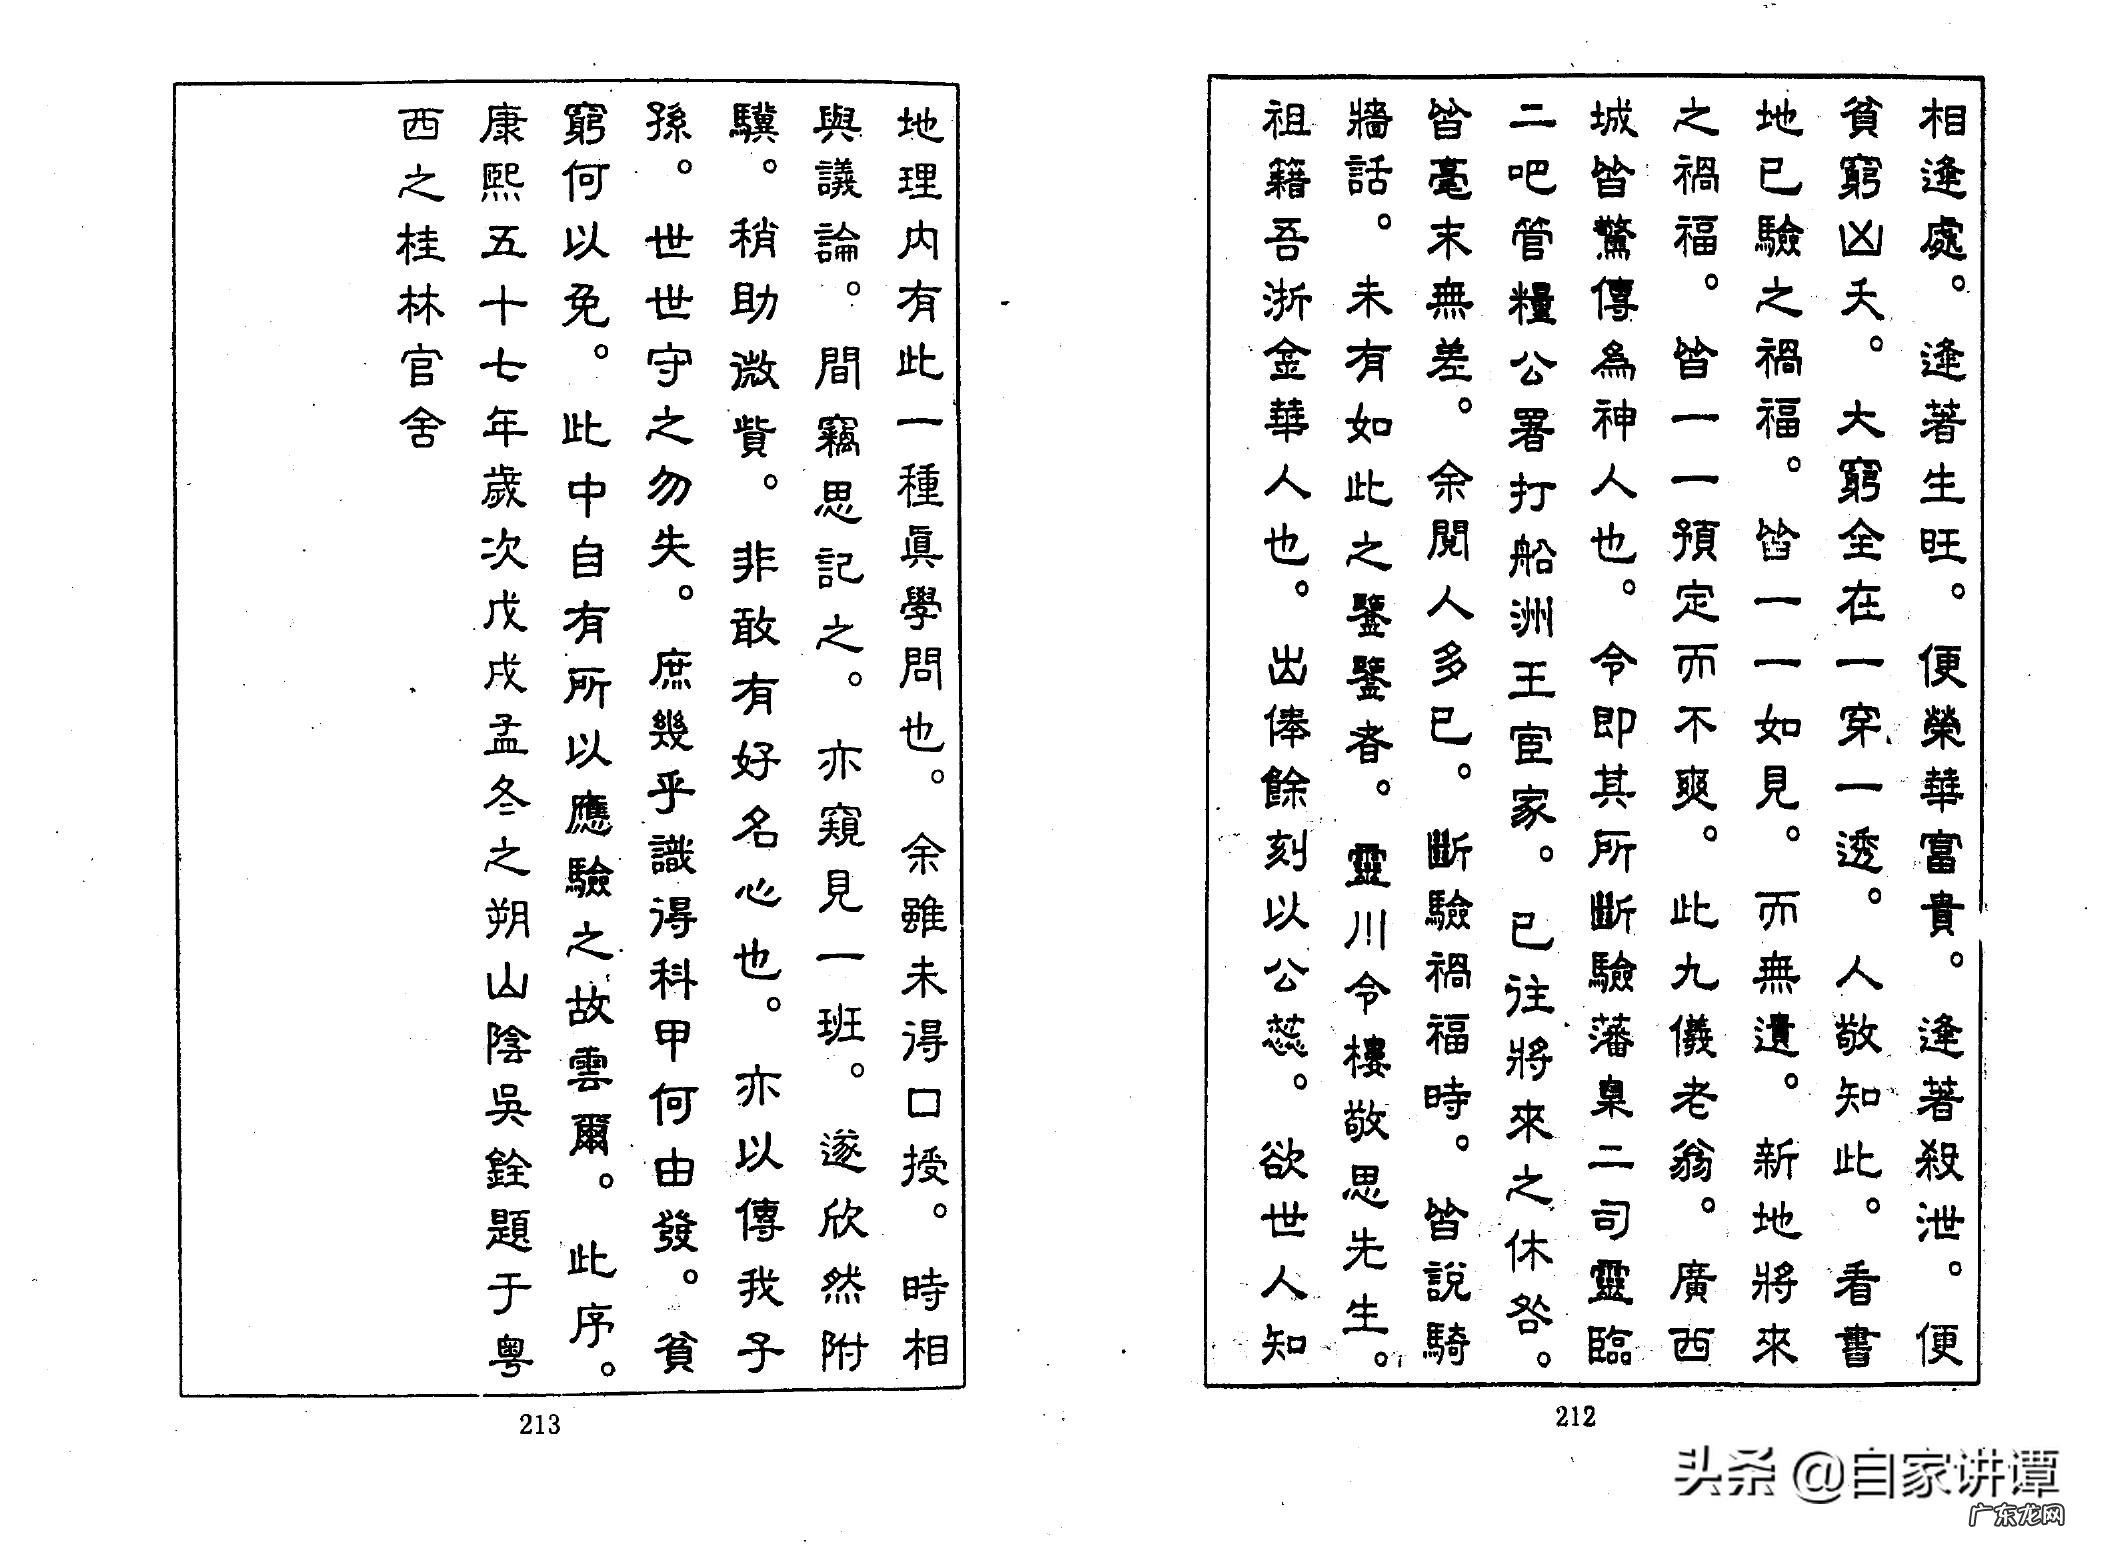 相逢處。逢著生旺。便榮華富貴。逢著殺泄。便
貧窮凶夭。大窮全在一穿一透。人敬知此。看書
地已驗之禍福。皆一一如見。而無遺。新地將來
之禍福。皆一一預定而不爽。此九儀老翁。廣西
城皆驚傳為神人也。令即其所斷驗藩臬二司靈臨
二吧管糧公署打船洲王宦家。已往將來之休咎。
皆毫末無差。余閱人多已。斷驗禍福時。皆說騎
牆話。未有如此之鑿鑿者。靈川令樓敬思先生。
祖籍吾浙金華人也。出俸餘刻以公蕊。欲世人知
地理内有此一種眞學問也。余雖未得口授。時相
與議論。間竊思記之。亦窺見一班。遂欣然附
驥。稍助微貲。非敢有好名心也。亦以傳我子
孫。世世守之勿失。庶幾乎識得科甲何由發。貧
窮何以免。此中自有所以應驗之故雲爾。此序。
康熙五十七年歲次戊戌孟冬之朔山陰吳銓題于粤
西之桂林官舍
212
213
头条 @自家讲谭
广东龙网